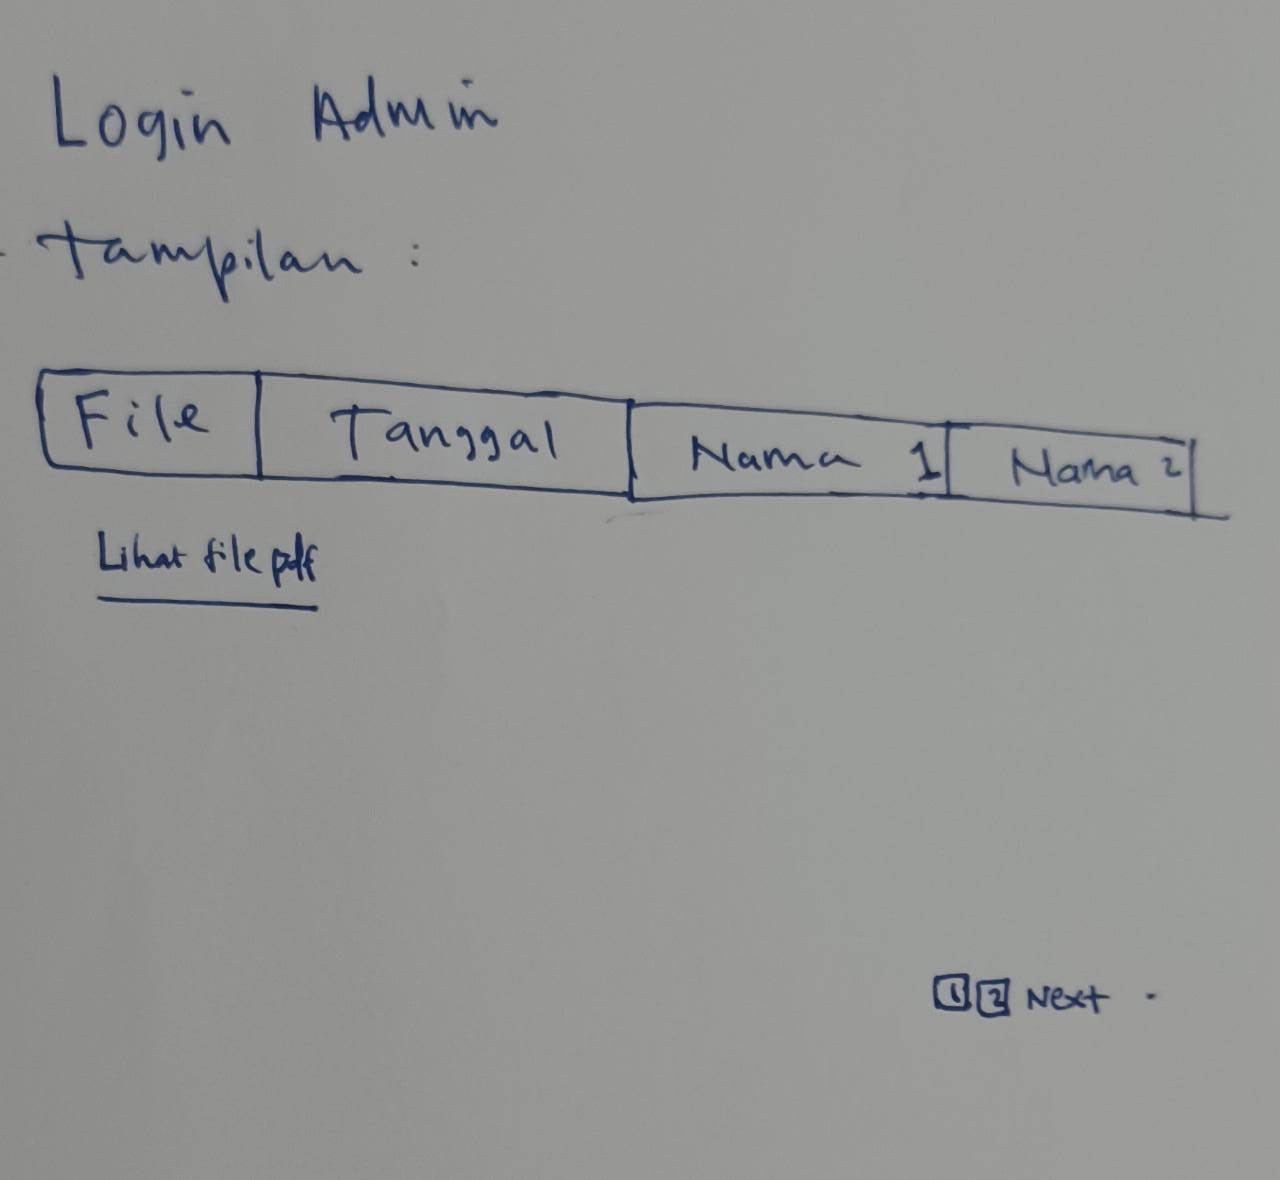 Login Admin
Tampilan :
File Tanggal Nama 1 Nama 2
Lihat file pdf
1 2 Next